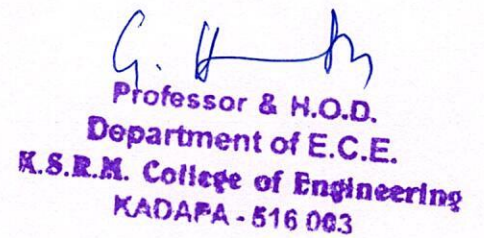 G. H
Professor & H.O.D.
Department of E.C.E.
K.S.R.M. College of Engineering
KADAPA - 516 003